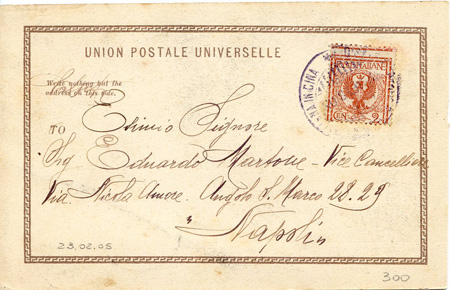 UNION POSTALE UNIVERSELLE
Write nothing but the
address on this side.
TO
Esimio Signore
Sig Eduardo Martone - Vice Cancelliere
Via Nicola Amore. Angolo S. Marco 28.29
"Napoli"
23.02.05
300
ITALIANE
CEN. 2
IN CINA